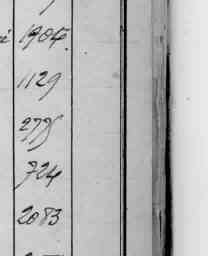 1904.
1129
2775
724
2083